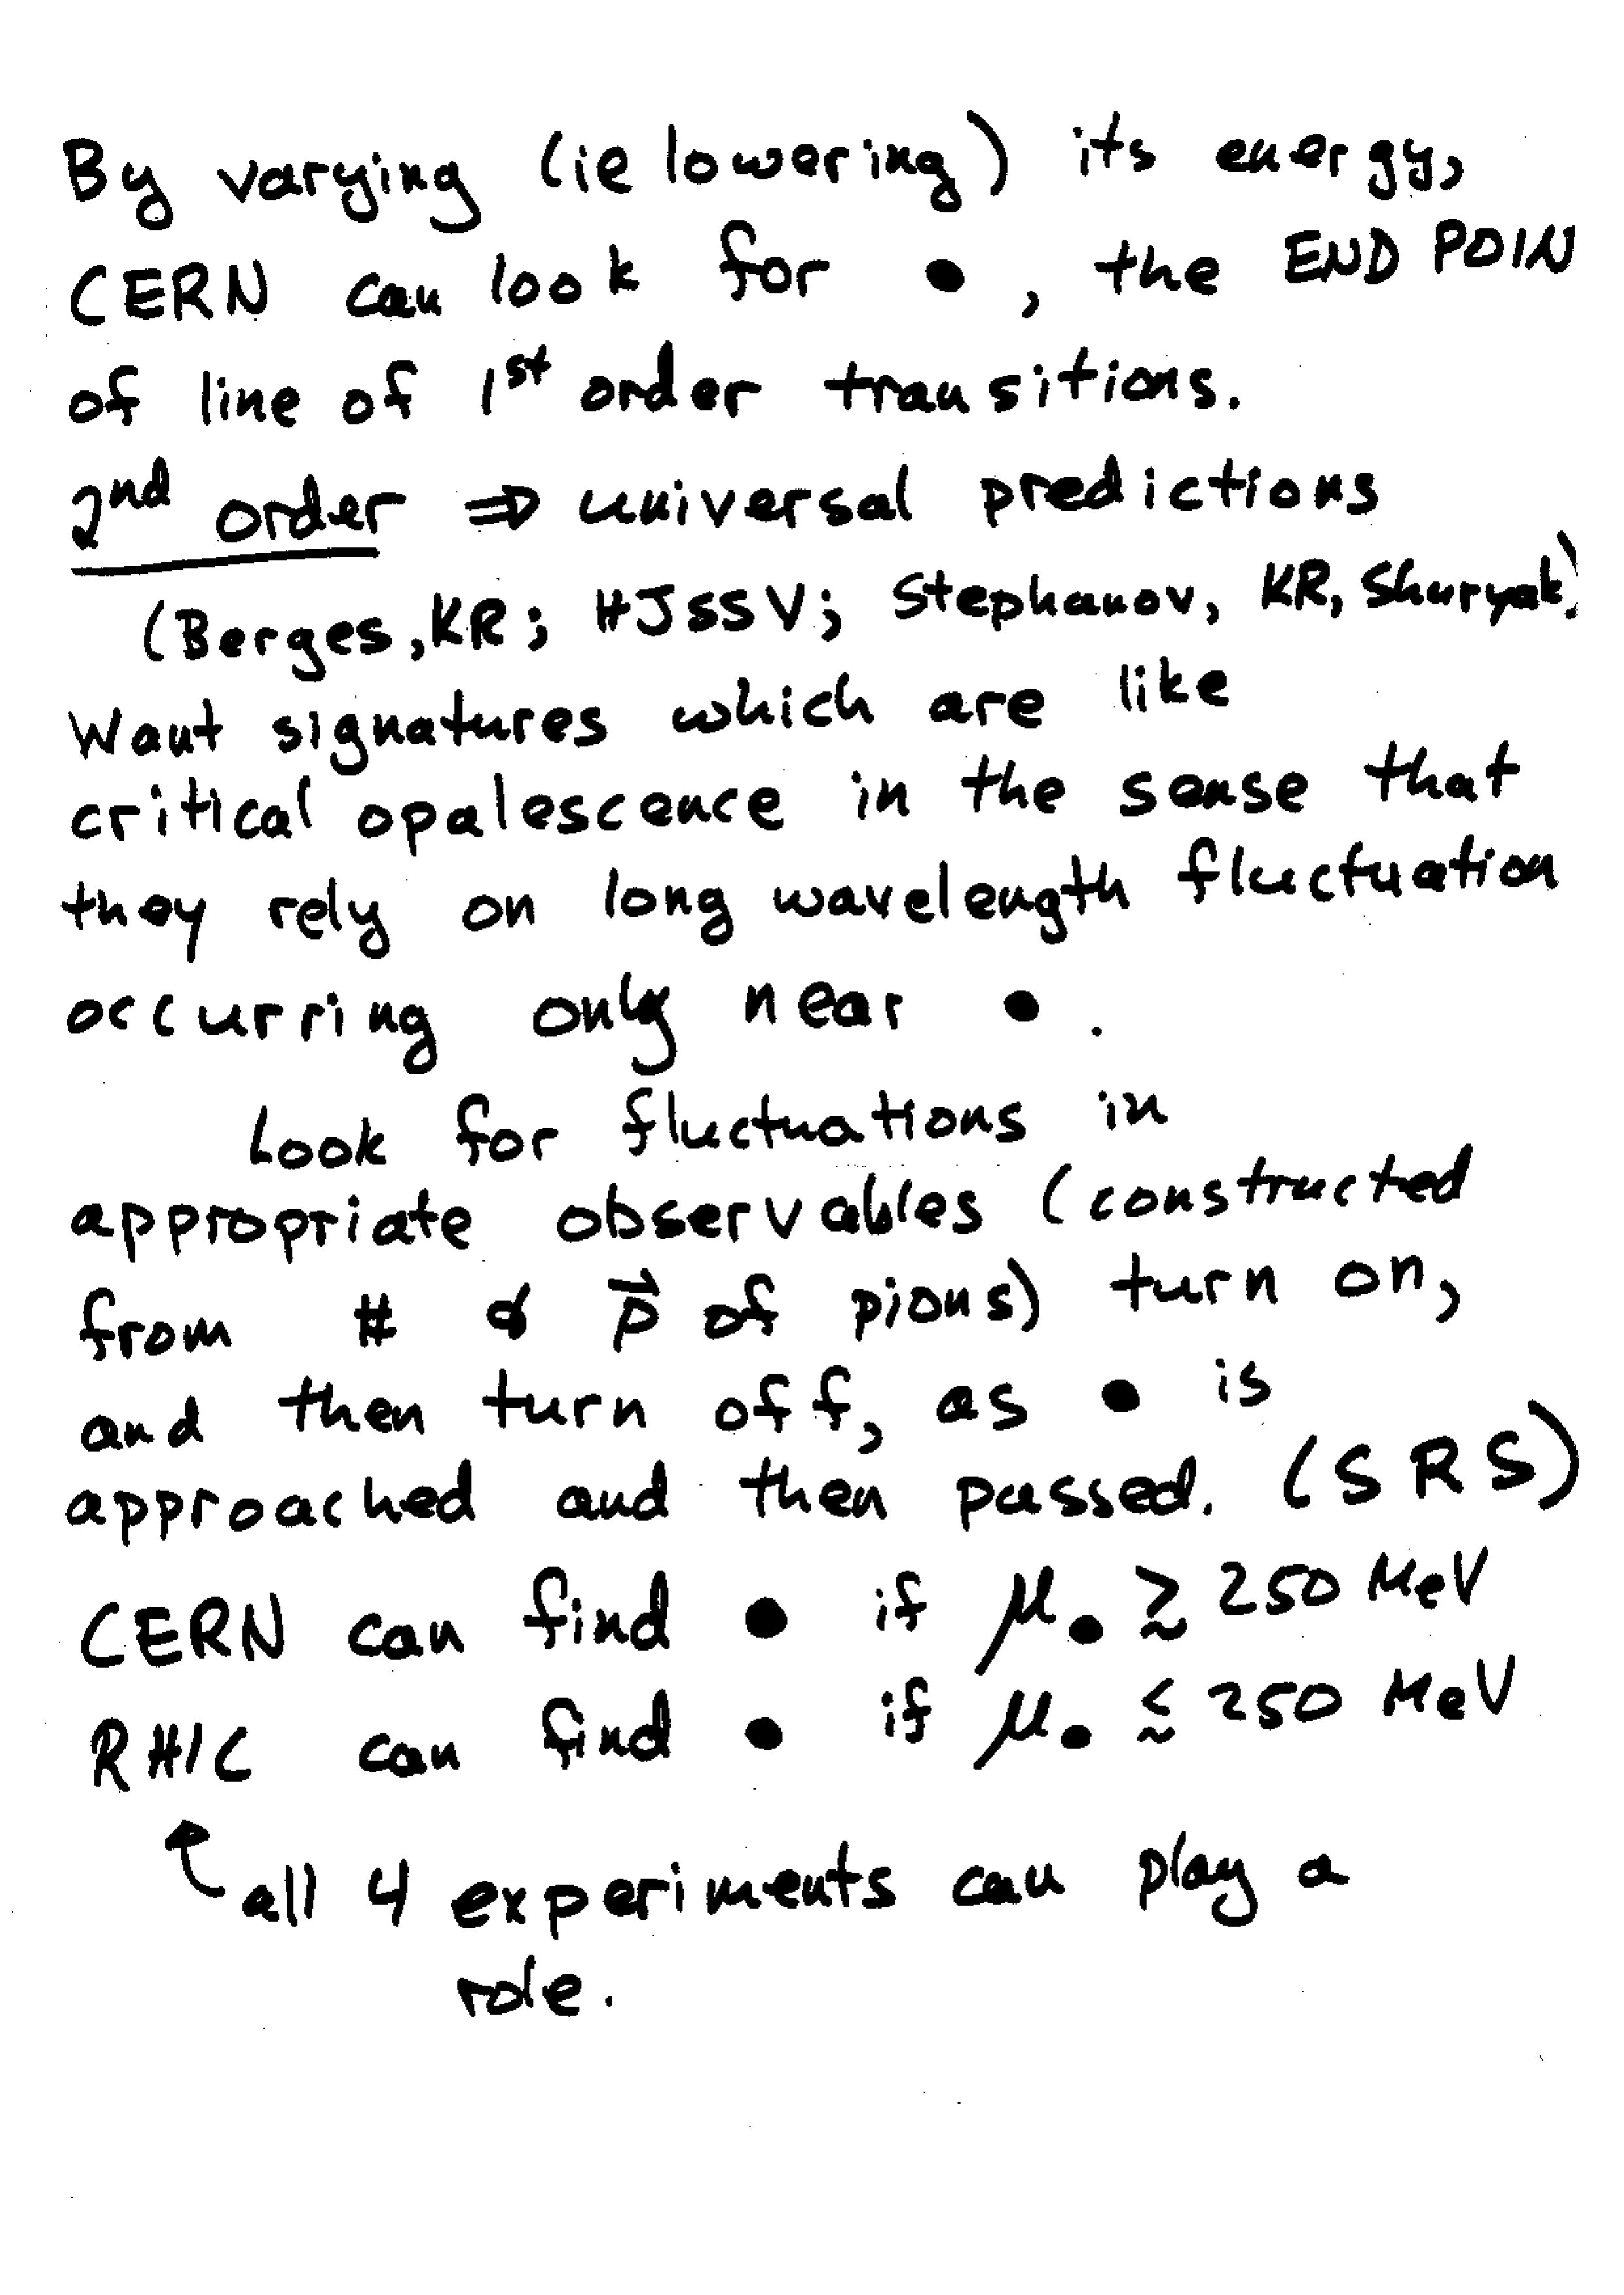 By varying (ie lowering) its energy,
CERN can look for ●, the END POIN
of line of 1st order transitions.
2nd order ⇒ universal predictions
(Berges, KR; HJSSV; Stephanov, KR, Shuryak)
Want signatures which are like
critical opalescence in the sense that
they rely on long wavelength fluctuation
occurring only near ● .
Look for fluctuations in
appropriate observables (constructed
from # & p⃗ of pions) turn on,
and then turn off, as ● is
approached and then passed. (SRS)
CERN can find ● if μ● ≳ 250 MeV
RHIC can find ● if μ● ≲ 250 MeV
all 4 experiments can play a
role.